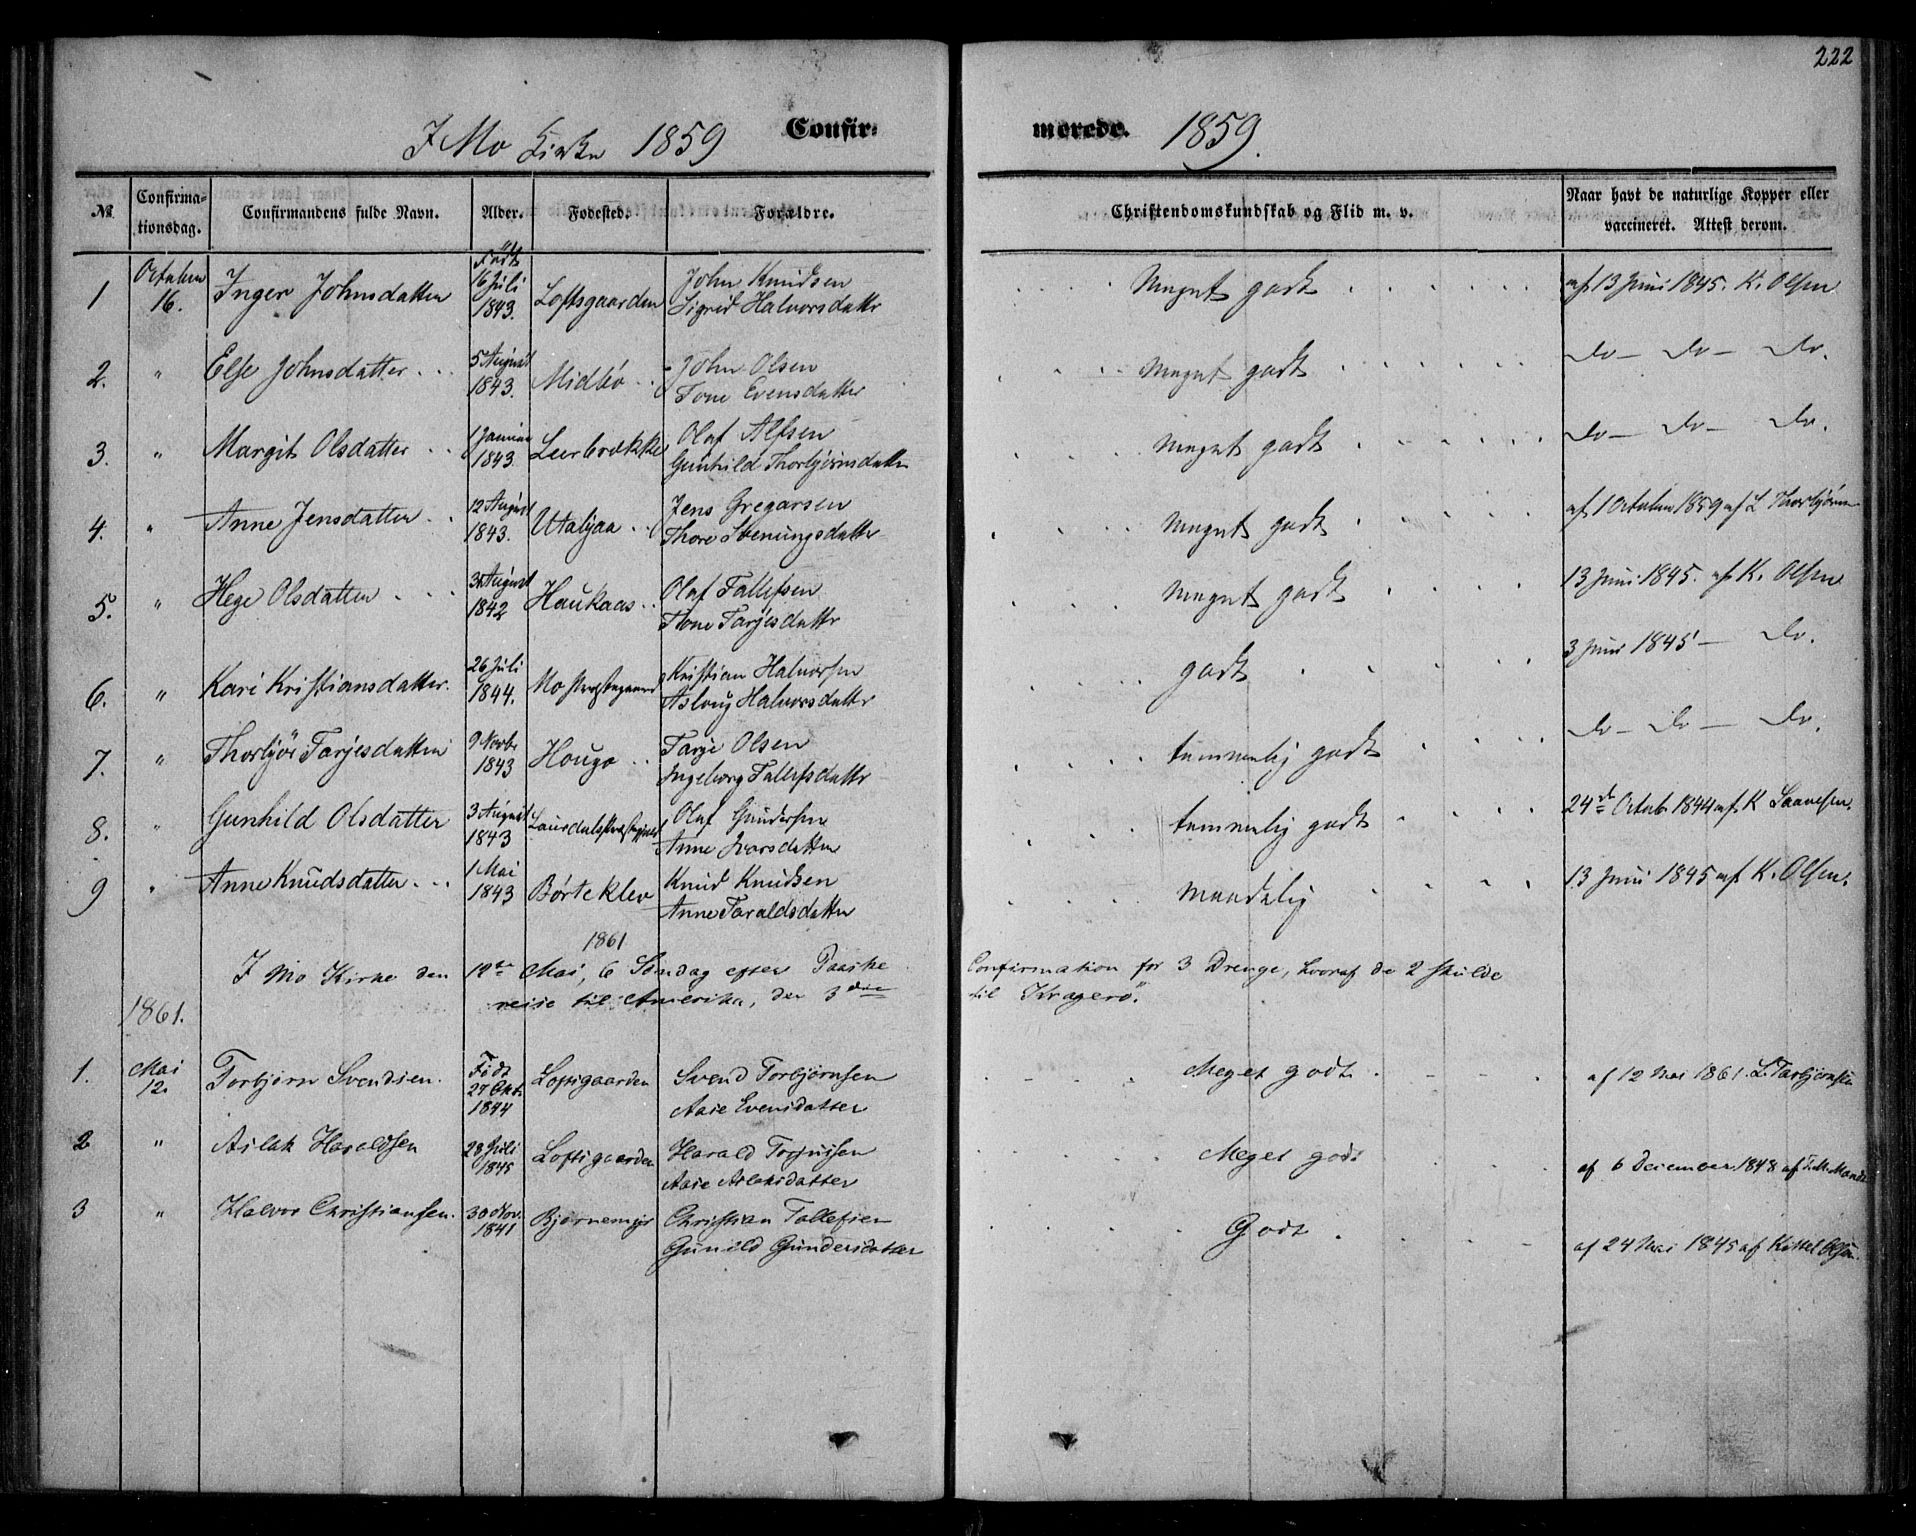 222
I Mo Kirke 1859 Confir-
morede. 1859.
№ Confirma-tionsdag. Confirmandens fulde Navn. Alder. Fødested. Forældre. Christendomskundskab og Flid m. v. Naar havt de naturlige Kopper eller vaccineret. Attest derom.
1 October 16. Inger Johnsdatter Født 16 Juli 1843. Loftsgaarden John Knudsen Sigrid Halvorsdattr Meget godt af 13 Juni 1845. K. Olsen
2. " Else Johnsdatter 5 August 1843. Midbö John Olsen Tone Evensdatter Meget godt do — do — do.
3. " Margit Olsdatter 1 Januar 1843. Leerbrække Olaf Alfsen Gunhild Thorbjörnsdatter meget godt do — do — do.
4. " Anne Jensdatter 12 August 1843. Utalijaa Jens Gregarsen Thore Svenungsdatter meget godt af 1 October 1859 af L Thorbjörnsen
5. " Hege Olsdatter August 1842 Haukaas Olaf Tallefsen Tone Tarjesdattr meget godt 13 Juni 1845. af K. Olsen
6. " Kari Kristiansdatter. 26 Juli 1844. Mo Præstegaard Kristian Halvorsen Aslaug Halvorsdattr godt 3 Juni 1845 — do.
7. " Thorbjör Tarjesdatter 9 Novbr 1843 Hougo Tarje Olsen Ingeborg Tallefsdattr temmelig godt do — do — do.
8. " Gunhild Olsdatter 3 August 1843 Laurdals Præstegjeld Olaf Gundersen Anne Ivarsdatter temmelig godt 24de Octob 1844 af K Saavesen.
9 " Anne Knudsdatter 1 Mai 1843 Børteklev Knud Knudsen Anne Taraldsdatter maadelig 13 Juni 1845 af K. Olsen.
1861
I Mo Kirke den 12te Mai, 6 Søndag efter Paaske Confirmation for 3 Drenge, hvoraf de 2 skulde
reise til Amerika, den 3die til Kragerø.
1861.
1. Mai 12. Torbjørn Svendsen. Født 27 Okt. 1844 Loftsgaarden Svend Torbjørnsen Aase Evensdatter Meget godt. af 12 Mai 1861. L. Torbjørnsen
2 " Aslak Haraldsen 28 Juli 1845 Loftsgaarden Harald Torjussen Aase Aslaksdatter Meget godt af 6 December 1848 af T. M. Mandt
3 " Halvor Christiansen. 30 Nov. 1841 Bjørnemyr Christian Tollefsen Gunild Gundersdatter Godt. af 24 Mai 1845 af Kittel Olsen.